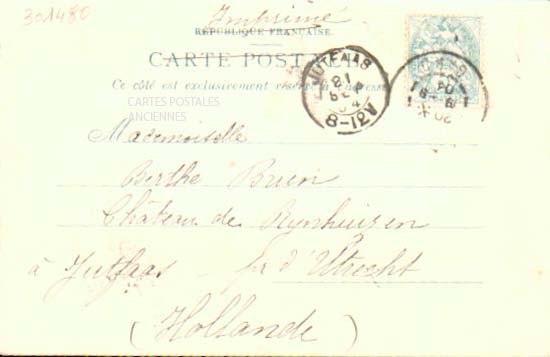 301480
Imprimé
RÉPUBLIQUE FRANÇAISE.
CARTE POSTALE
Ce côté est exclusivement réservé à l'adresse
CARTES POSTALES
ANCIENNES
JUTFAAS
21
04
8-12V
Mademoiselle
Berthe Buen
Château de Rynhuizen
à Jutfaas par d'Utrecht
(Hollande)